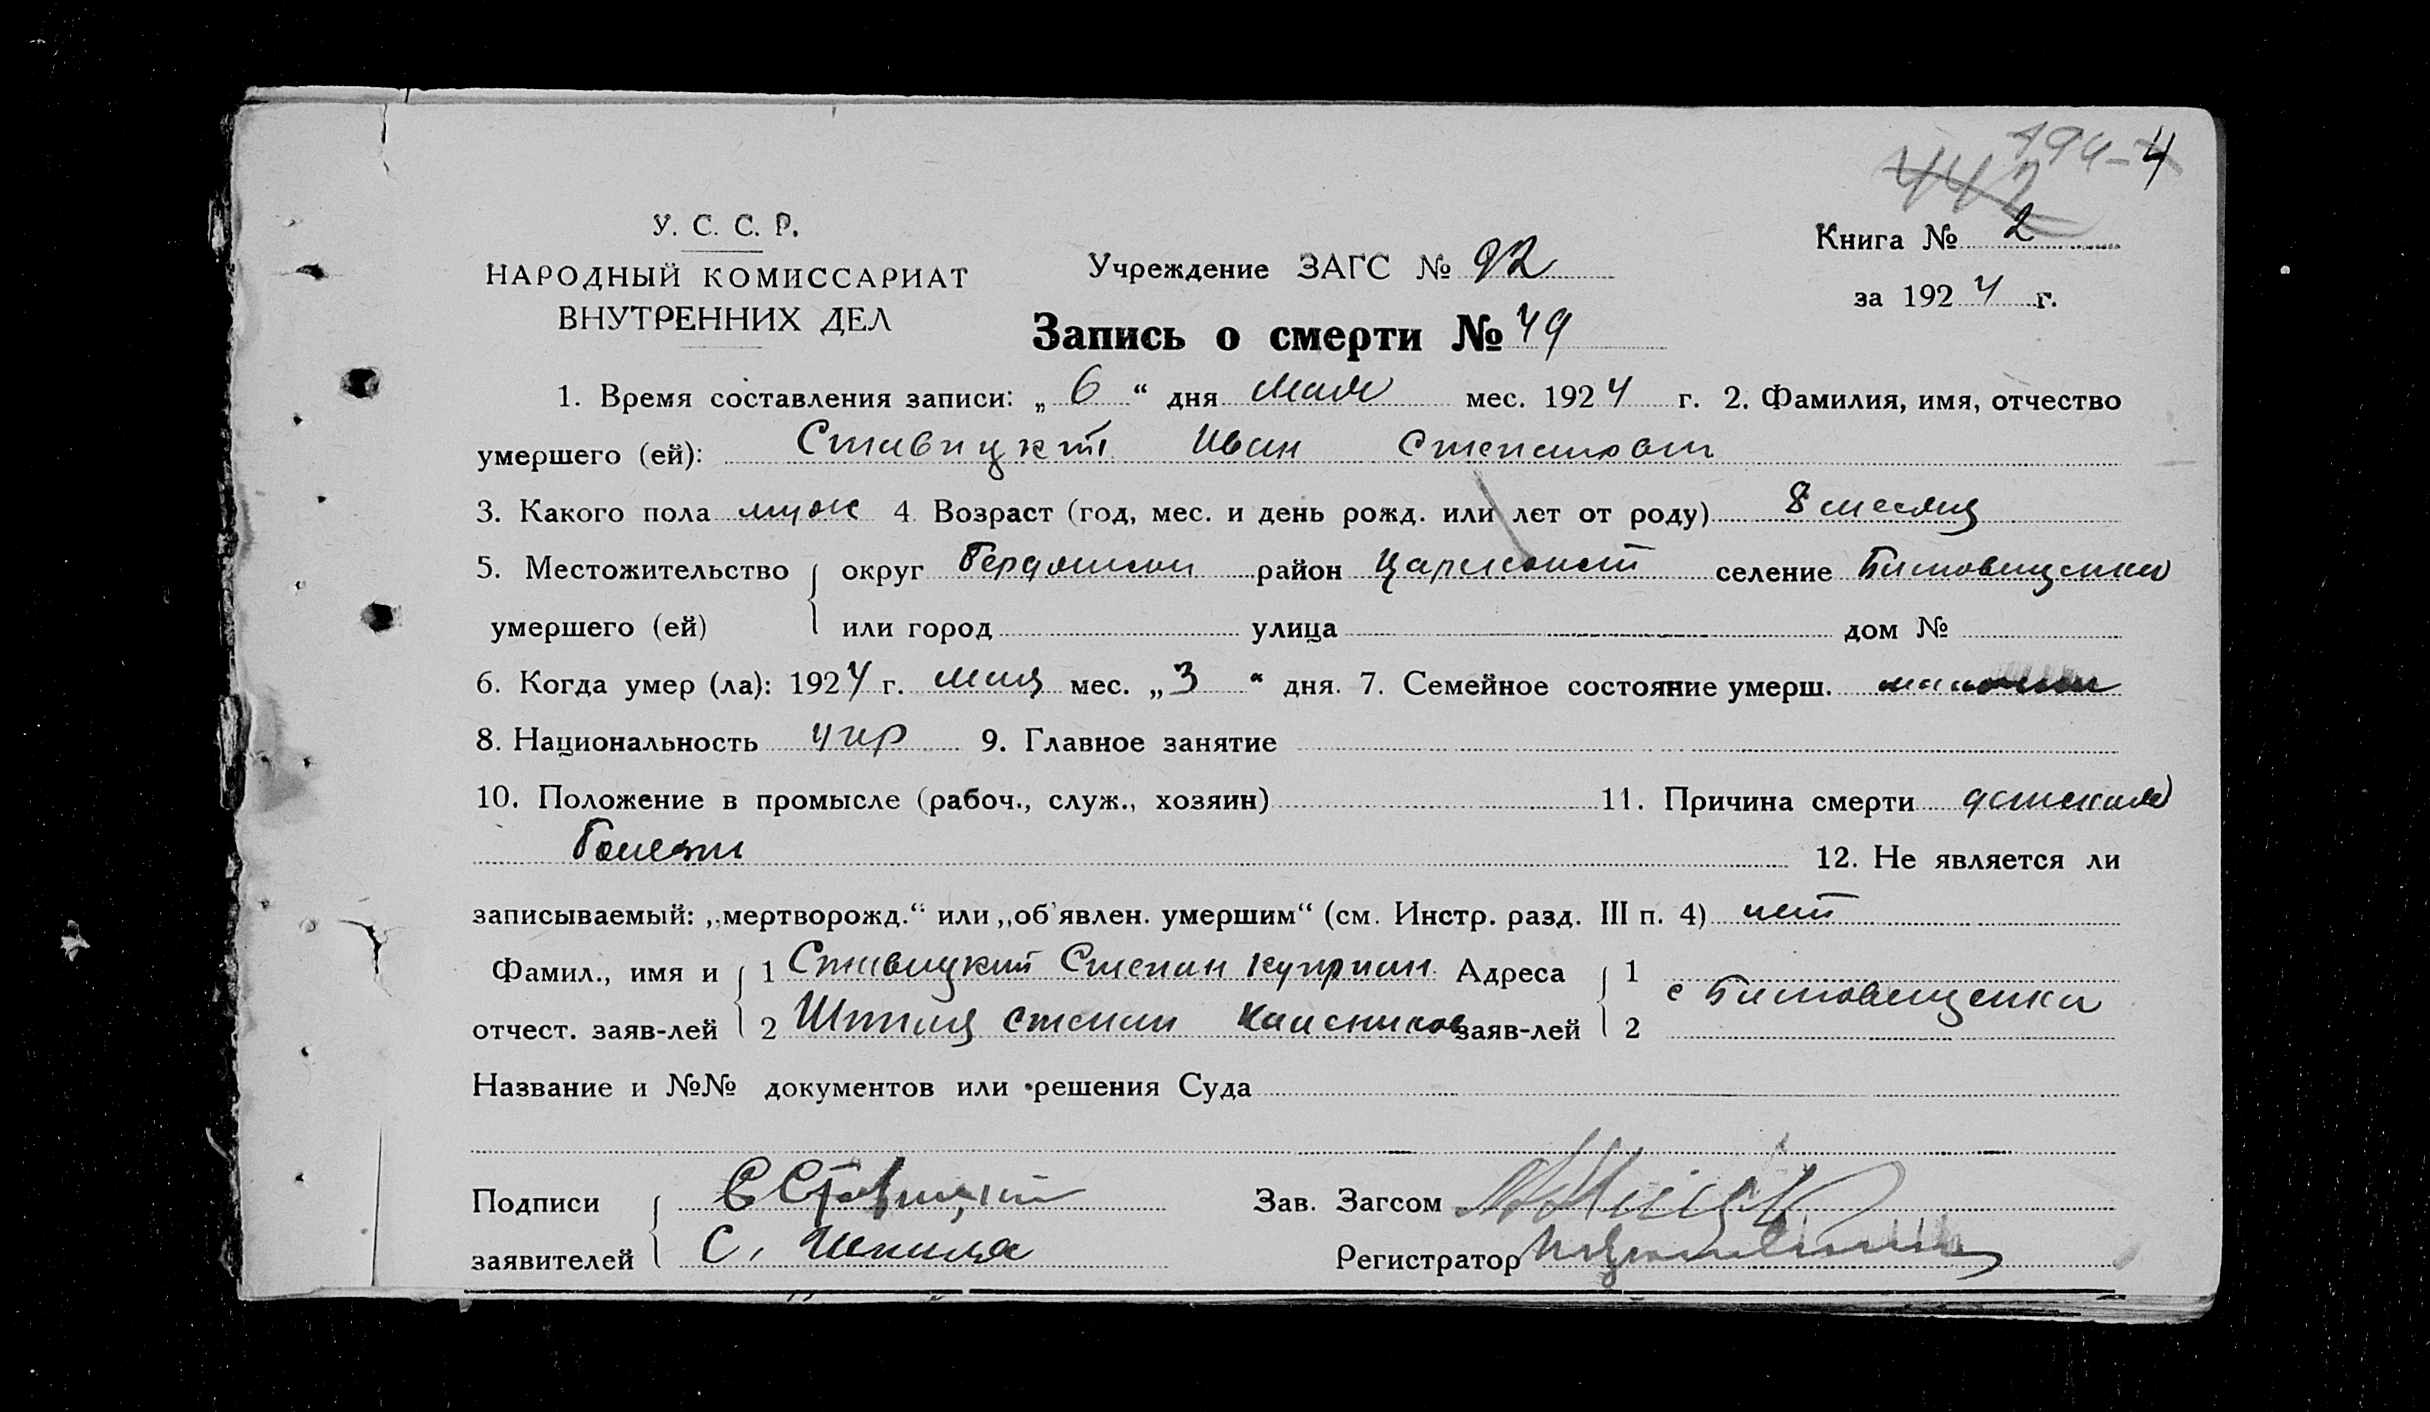 494-4
442
У. С. С. Р.
НАРОДНЫЙ КОМИССАРИАТ
ВНУТРЕННИХ ДЕЛ
Учреждение ЗАГС № 92
Книга № 2
за 1924 г.
Запись о смерти № 49
1. Время составления записи: „ 6 “ дня мая мес. 1924 г. 2. Фамилия, имя, отчество
умершего (ей): Ставицкий Иван Степанов
3. Какого пола муж 4 Возраст (год, мес. и день рожд. или лет от роду) 8 месяц
5. Местожительство округ Бердянский район Царекост селение
умершего (ей) или город улица дом №
6. Когда умер (ла): 1924 г. мац мес. „ 3 “ дня. 7. Семейное состояние умерш.
8. Национальность укр 9. Главное занятие
10. Положение в промысле (рабоч., служ., хозяин) 11. Причина смерти детская
болезн
12. Не является ли
записываемый: „мертворожд.“ или „об'явлен. умершим“ (см. Инстр. разд. III п. 4) нет
Фамил., имя и 1 Ставицкий Степан Куприан Адреса 1
отчест. заяв-лей 2 Степан заяв-лей 2 с
Название и №№ документов или решения Суда
Подписи С Ставицкий Зав. Загсом
заявителей С. Шпила Регистратор